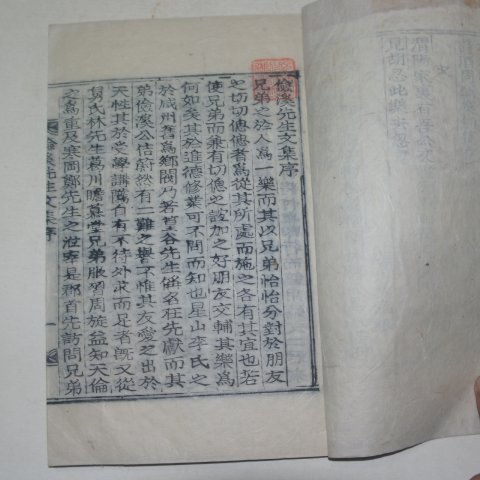 儉溪先生文集序
兄弟之於人爲一樂而其以兄弟怡怡分對於朋友
之切切偲偲者爲從其所處而施之各有其宜也若
使兄弟而兼有切偲之誼加之好朋友交輔其樂爲
何如矣其於進德修業可不問而知也星山李氏之
於咸州舊爲鄕閥乃若篁谷先生稱名在先獻而其
弟儉溪公佶蔚然有二難之譽不惟其友愛之出於
天性其於學講隲自有不待外求而足者旣又從
賀氏林先生葛川瞻慕堂兄弟服習周旋益知天倫
之爲重及寒岡鄭先生之涖宰是郡首先訪問兄弟
儉溪先生文集序